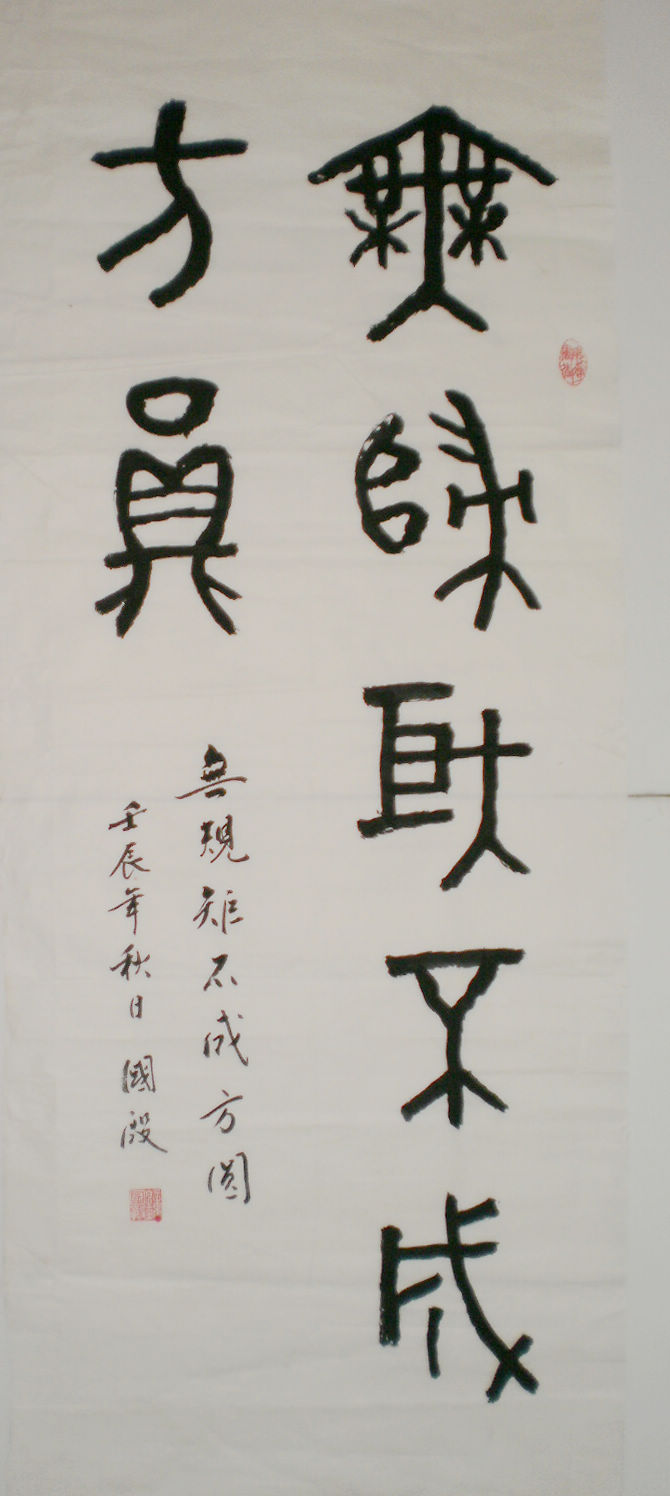 無規矩不成
方員
無規矩不成方圓
壬辰年秋日國殷